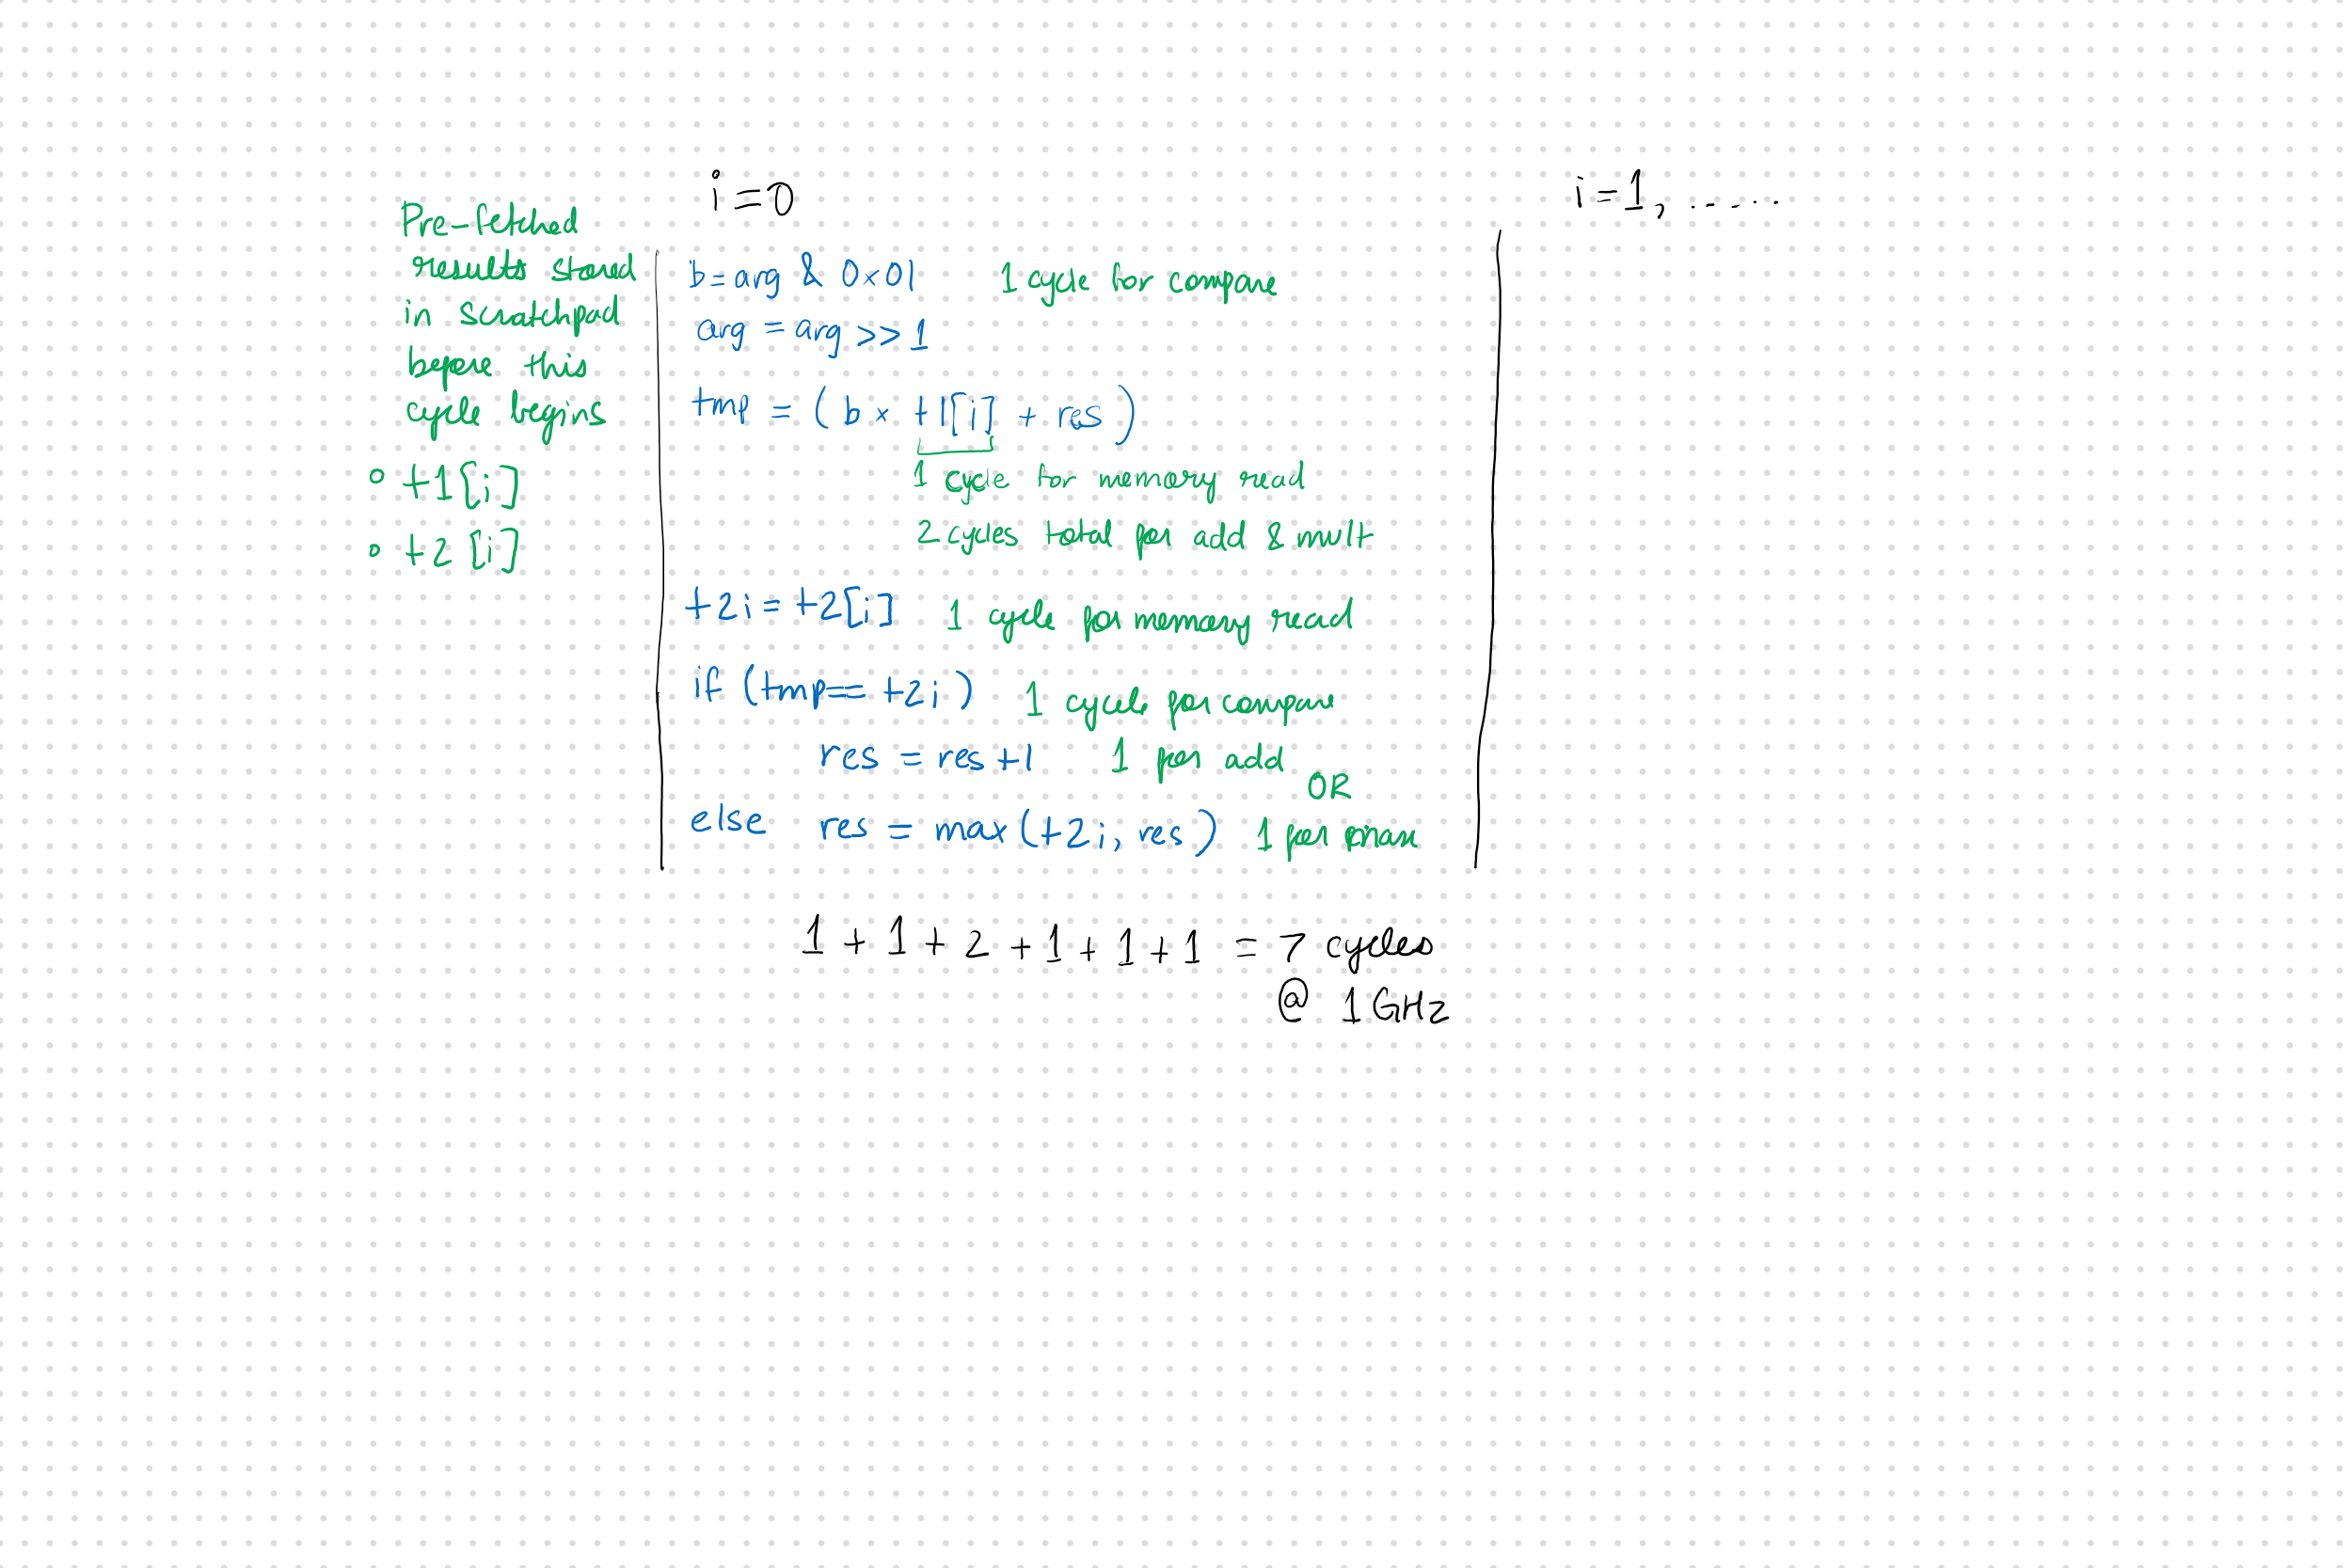 Pre-fetched
results stored
in scratchpad
before this
cycle begins
◦ t1[i]
◦ t2[i]
i=0
b=arg & 0x01 1 cycle for compare
arg = arg >> 1
tmp = (b × t1[i] + res)
1 cycle for memory read
2 cycles total for add & mult
t2i = t2[i] 1 cycle for memory read
if (tmp== t2i) 1 cycle for compare
res = res +1 1 for add
OR
else res = max(t2i, res) 1 for max
1 + 1 + 2 + 1 + 1 + 1 = 7 cycles
@ 1 GHz
i=1, .....